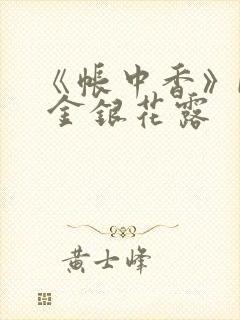 《帐中香》
金银花露
黄士峰